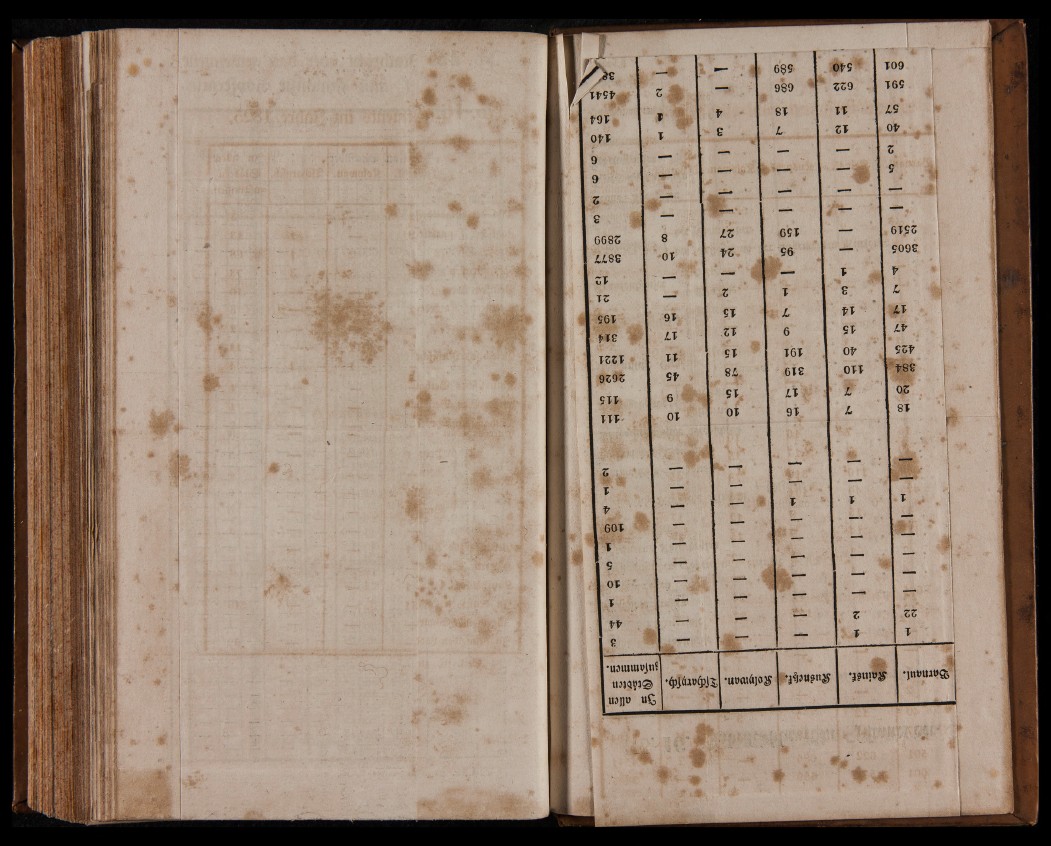 Barnaul. Kainsk. Kusnezk. Kolywan. Tscharysch. In allen
Städten
zusammen.
1 1 — — — 3
22 2 — — — 44
— — — — — 1
— — — — — 10
— — — — — 5
— — — — — 1
— — — — — 109
1 1 1 — — 4
— — — — — 1
— — — — — 2
18 7 16 10 10 111
20 7 17 15 9 115
384 110 319 78 45 2626
425 40 191 15 11 1221
47 15 9 12 17 314
17 14 7 15 16 195
7 3 1 2 — 21
4 1 — — — 12
3605 — 95 24 10 3877
2519 — 159 27 8 2899
— — — — — 3
— — — — — 2
5 — — — — 6
2 — — — — 6
40 12 7 3 1 140
57 11 18 4 1 164
591 622 686 — 2 4541
601 540 589 — —